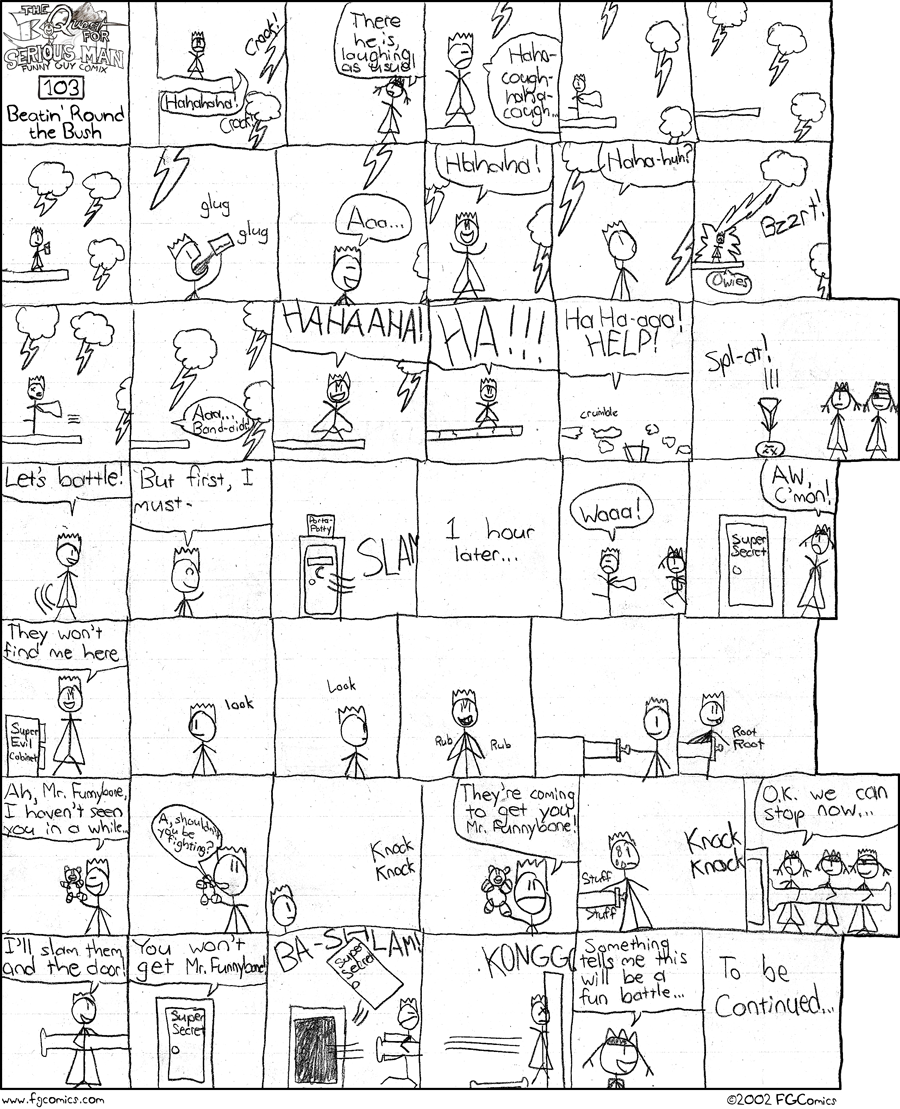 THE
BeQuest
FOR
SERIOUS MAN
FUNNY GUY COMIX
103
Beatin' Round
the Bush
Crack!
Hahahaha!
Crack!
There
he is,
laughing
as usual!
Haha-
cough-
haha-
cough...
glug
glug
Aaa...
Hahaha!
Haha-huh?
Bzzrt!
Owies
Aaa...
Band-aids!
HAHAAHA!
HA!!!
Ha Ha-aaa!
HELP!
crumble
Spl-at!
Let's battle!
But first, I
must-
Porta-
Potty
SLAM
1 hour
later...
Waaa!
AW,
C'mon!
Super
Secret
They won't
find me here
Super
Evil
Cabinet
look
Look
Rub
Rub
Root
Root
Ah, Mr. Funnybone,
I haven't seen
you in a while...
A, shouldn't
you be
fighting?
Knock
Knock
They're coming
to get you
Mr. Funnybone!
Stuff
Stuff
Knock
Knock
O.K. we can
stop now...
I'll slam them
and the door!
You won't
get Mr. Funnybone!
Super
Secret
BA-SHLAM!
Super
Secret
KONGGG
Something
tells me this
will be a
fun battle...
To be
Continued...
www.fgcomics.com
©2002 FGComics